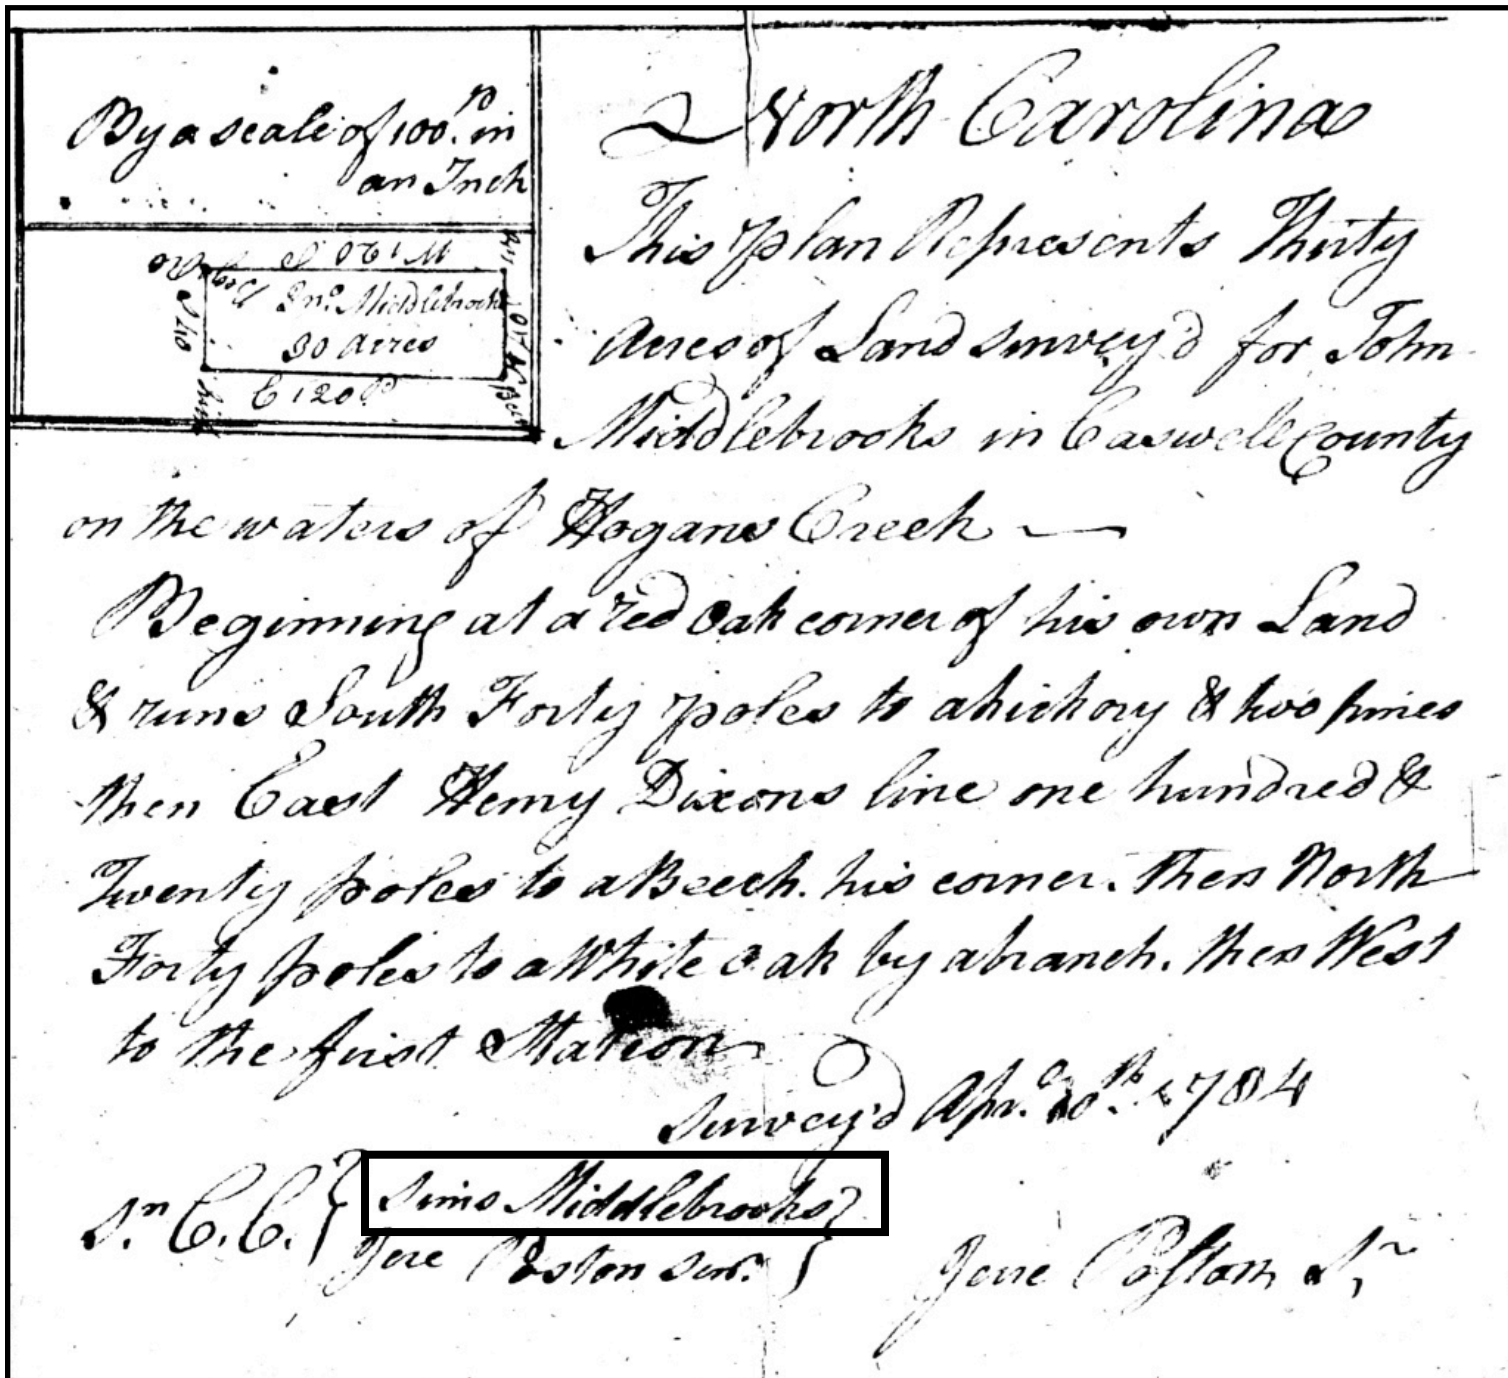 By a scale of 100.P in
an Inch
W 120 P
Beg. R O
S 40
Jno. Middlebrooks
30 Acres
E 120 P
N 40
Beech
North Carolina
This plan Represents Thirty
Acres of Land survey'd for John
Middlebrooks in Caswell County
on the waters of Hogans Creek —
Beginning at a red Oak corner of his own Land
& runs South Forty poles to a hickory & two pines
then East Henry Dixons line one hundred &
Twenty poles to a Beech. his corner. then North
Forty poles to a White oak by a branch. then West
to the first Station
survey'd Apr. 1784
Sn C. C. } Sims Middlebrooks }
Jere Poston Jur. }
Jere Poston Sr